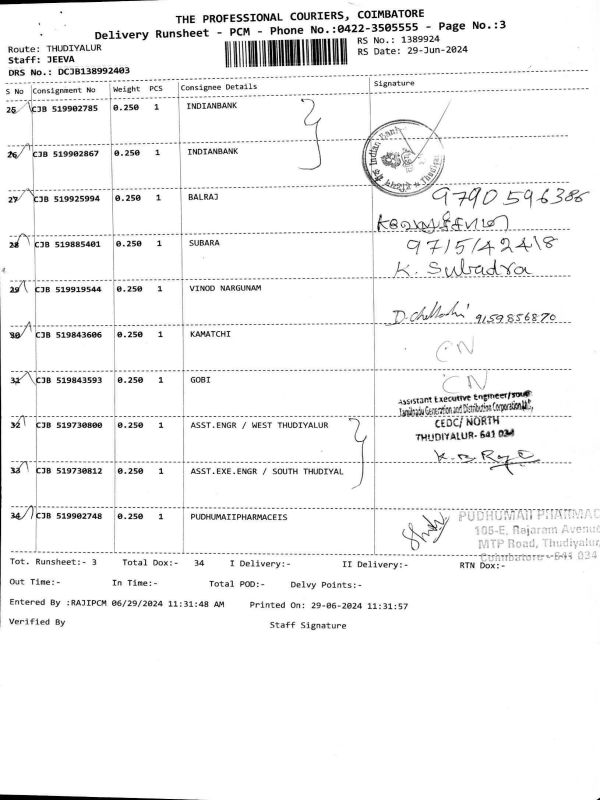 THE PROFESSIONAL COURIERS, COIMBATORE
Delivery Runsheet - PCM - Phone No.:0422-3505555 - Page No.:3
Route: THUDIYALUR
RS No.: 1389924
Staff: JEEVA
RS Date: 29-Jun-2024
DRS No.: DCJB138992403
S No Consignment No Weight PCS Consignee Details Signature
25 CJB 519902785 0.250 1 INDIANBANK
26 CJB 519902867 0.250 1 INDIANBANK
Indian Bank
27 CJB 519925994 0.250 1 BALRAJ
9790 596386
28 CJB 519885401 0.250 1 SUBARA
9715142418
K. Subadra
29 CJB 519919544 0.250 1 VINOD NARGUNAM
9159856870
30 CJB 519843606 0.250 1 KAMATCHI
CN
31 CJB 519843593 0.250 1 GOBI
CN
Assistant Executive Engineer/South
Tamilnadu Generation and Distribution Corporation Ltd.,
CEDC/ NORTH
THUDIYALUR- 641 034
32 CJB 519730800 0.250 1 ASST.ENGR / WEST THUDIYALUR
33 CJB 519730812 0.250 1 ASST.EXE.ENGR / SOUTH THUDIYAL
34 CJB 519902748 0.250 1 PUDHUMAIIPHARMACEIS
PUDHUMAII PHARMAC
105-E, Rajaram Avenue
MTP Road, Thudiyalur,
Coimbatore - 641 034
Tot. Runsheet:- 3 Total Dox:- 34 I Delivery:- II Delivery:- RTN Dox:-
Out Time:- In Time:- Total POD:- Delvy Points:-
Entered By :RAJIPCM 06/29/2024 11:31:48 AM Printed On: 29-06-2024 11:31:57
Verified By Staff Signature